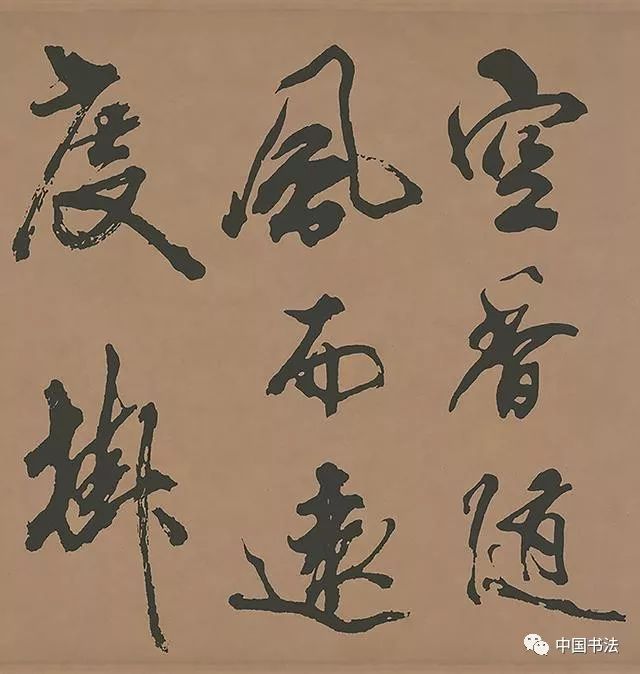 空香随
風而遠
度掛
中国书法